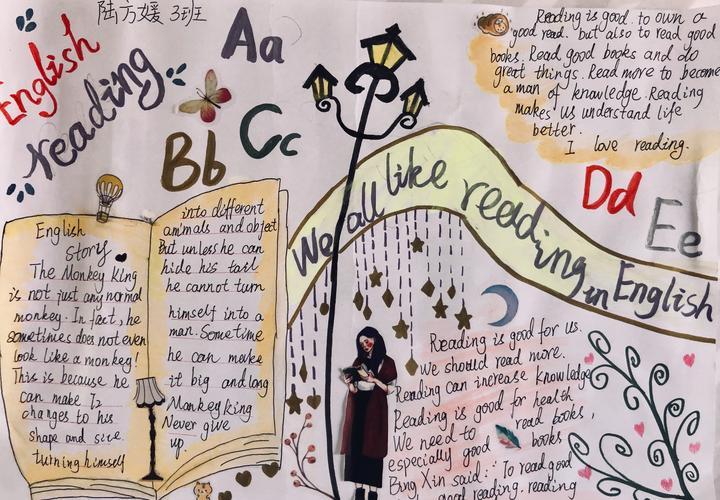 陆方媛 3班
English
reading
Aa
Bb
Cc
Dd
Ee
Reading is good. to own a
good read. but also to read good
books. Read good books and do
great things. Read more to become
a man of knowledge. Reading
makes us understand life
better.
I love reading.
We all like reading in English
English
story
The Monkey King
is not just any normal
monkey. In fact, he
sometimes does not even
look like a monkey!
This is because he
can make 72
changes to his
shape and size.
turning himself
into different
animals and object
But unless he can
hide his tail
he cannot turn
himself into a
man. Sometime
he can make
it big and long
Monkey King
Never give
up.
Reading is good for us.
We should read more.
Reading can increase knowledge
Reading is good for health
We need to read books,
especially good books
Bing Xin said: To read good
good reading. reading